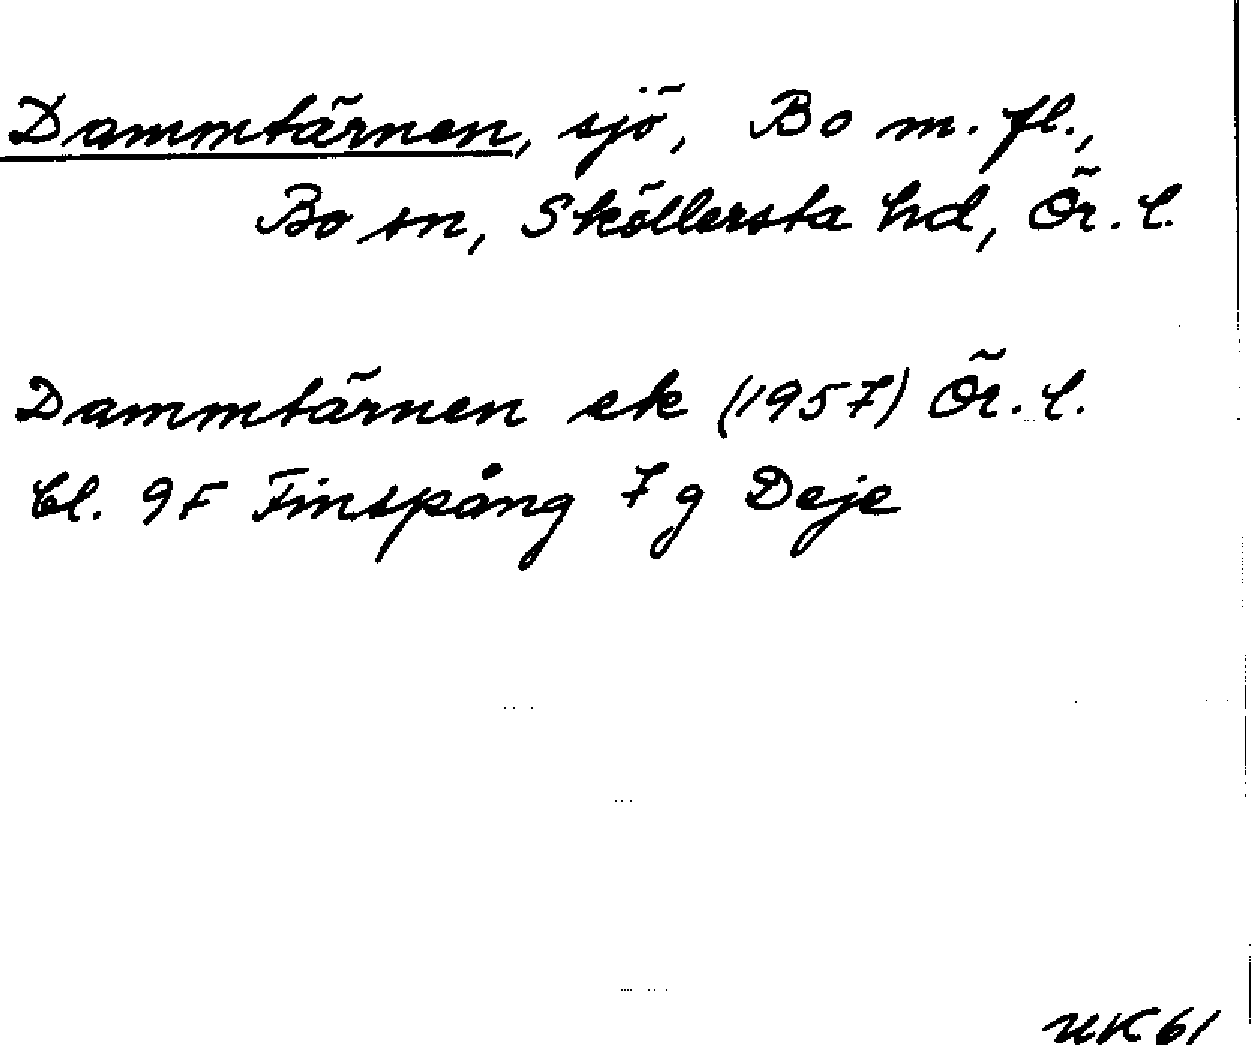 Dammtärnen, sjö, Bo m. fl.,
Bo sn, Sköllersta hd, Ör. l.
Dammtärnen ek (1957) Ör. l.
bl. 9F Finspång 7g Deje
UK 61